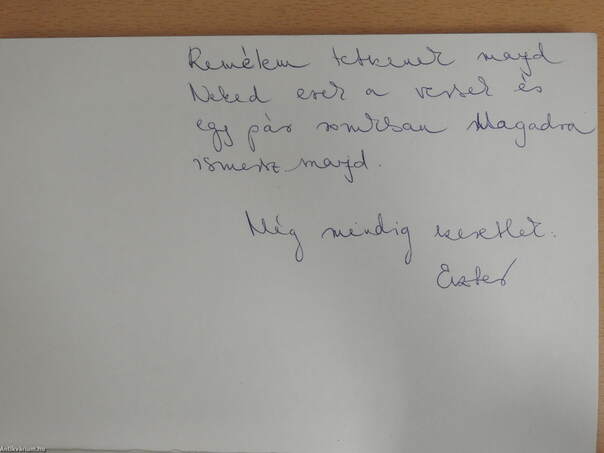 Remélem tetkenek majd
Neked ezek a versek és
egy pár sorukban Magadra
ismersz majd.
Még mindig szeretlek.
Eszter
Antikvarium.hu